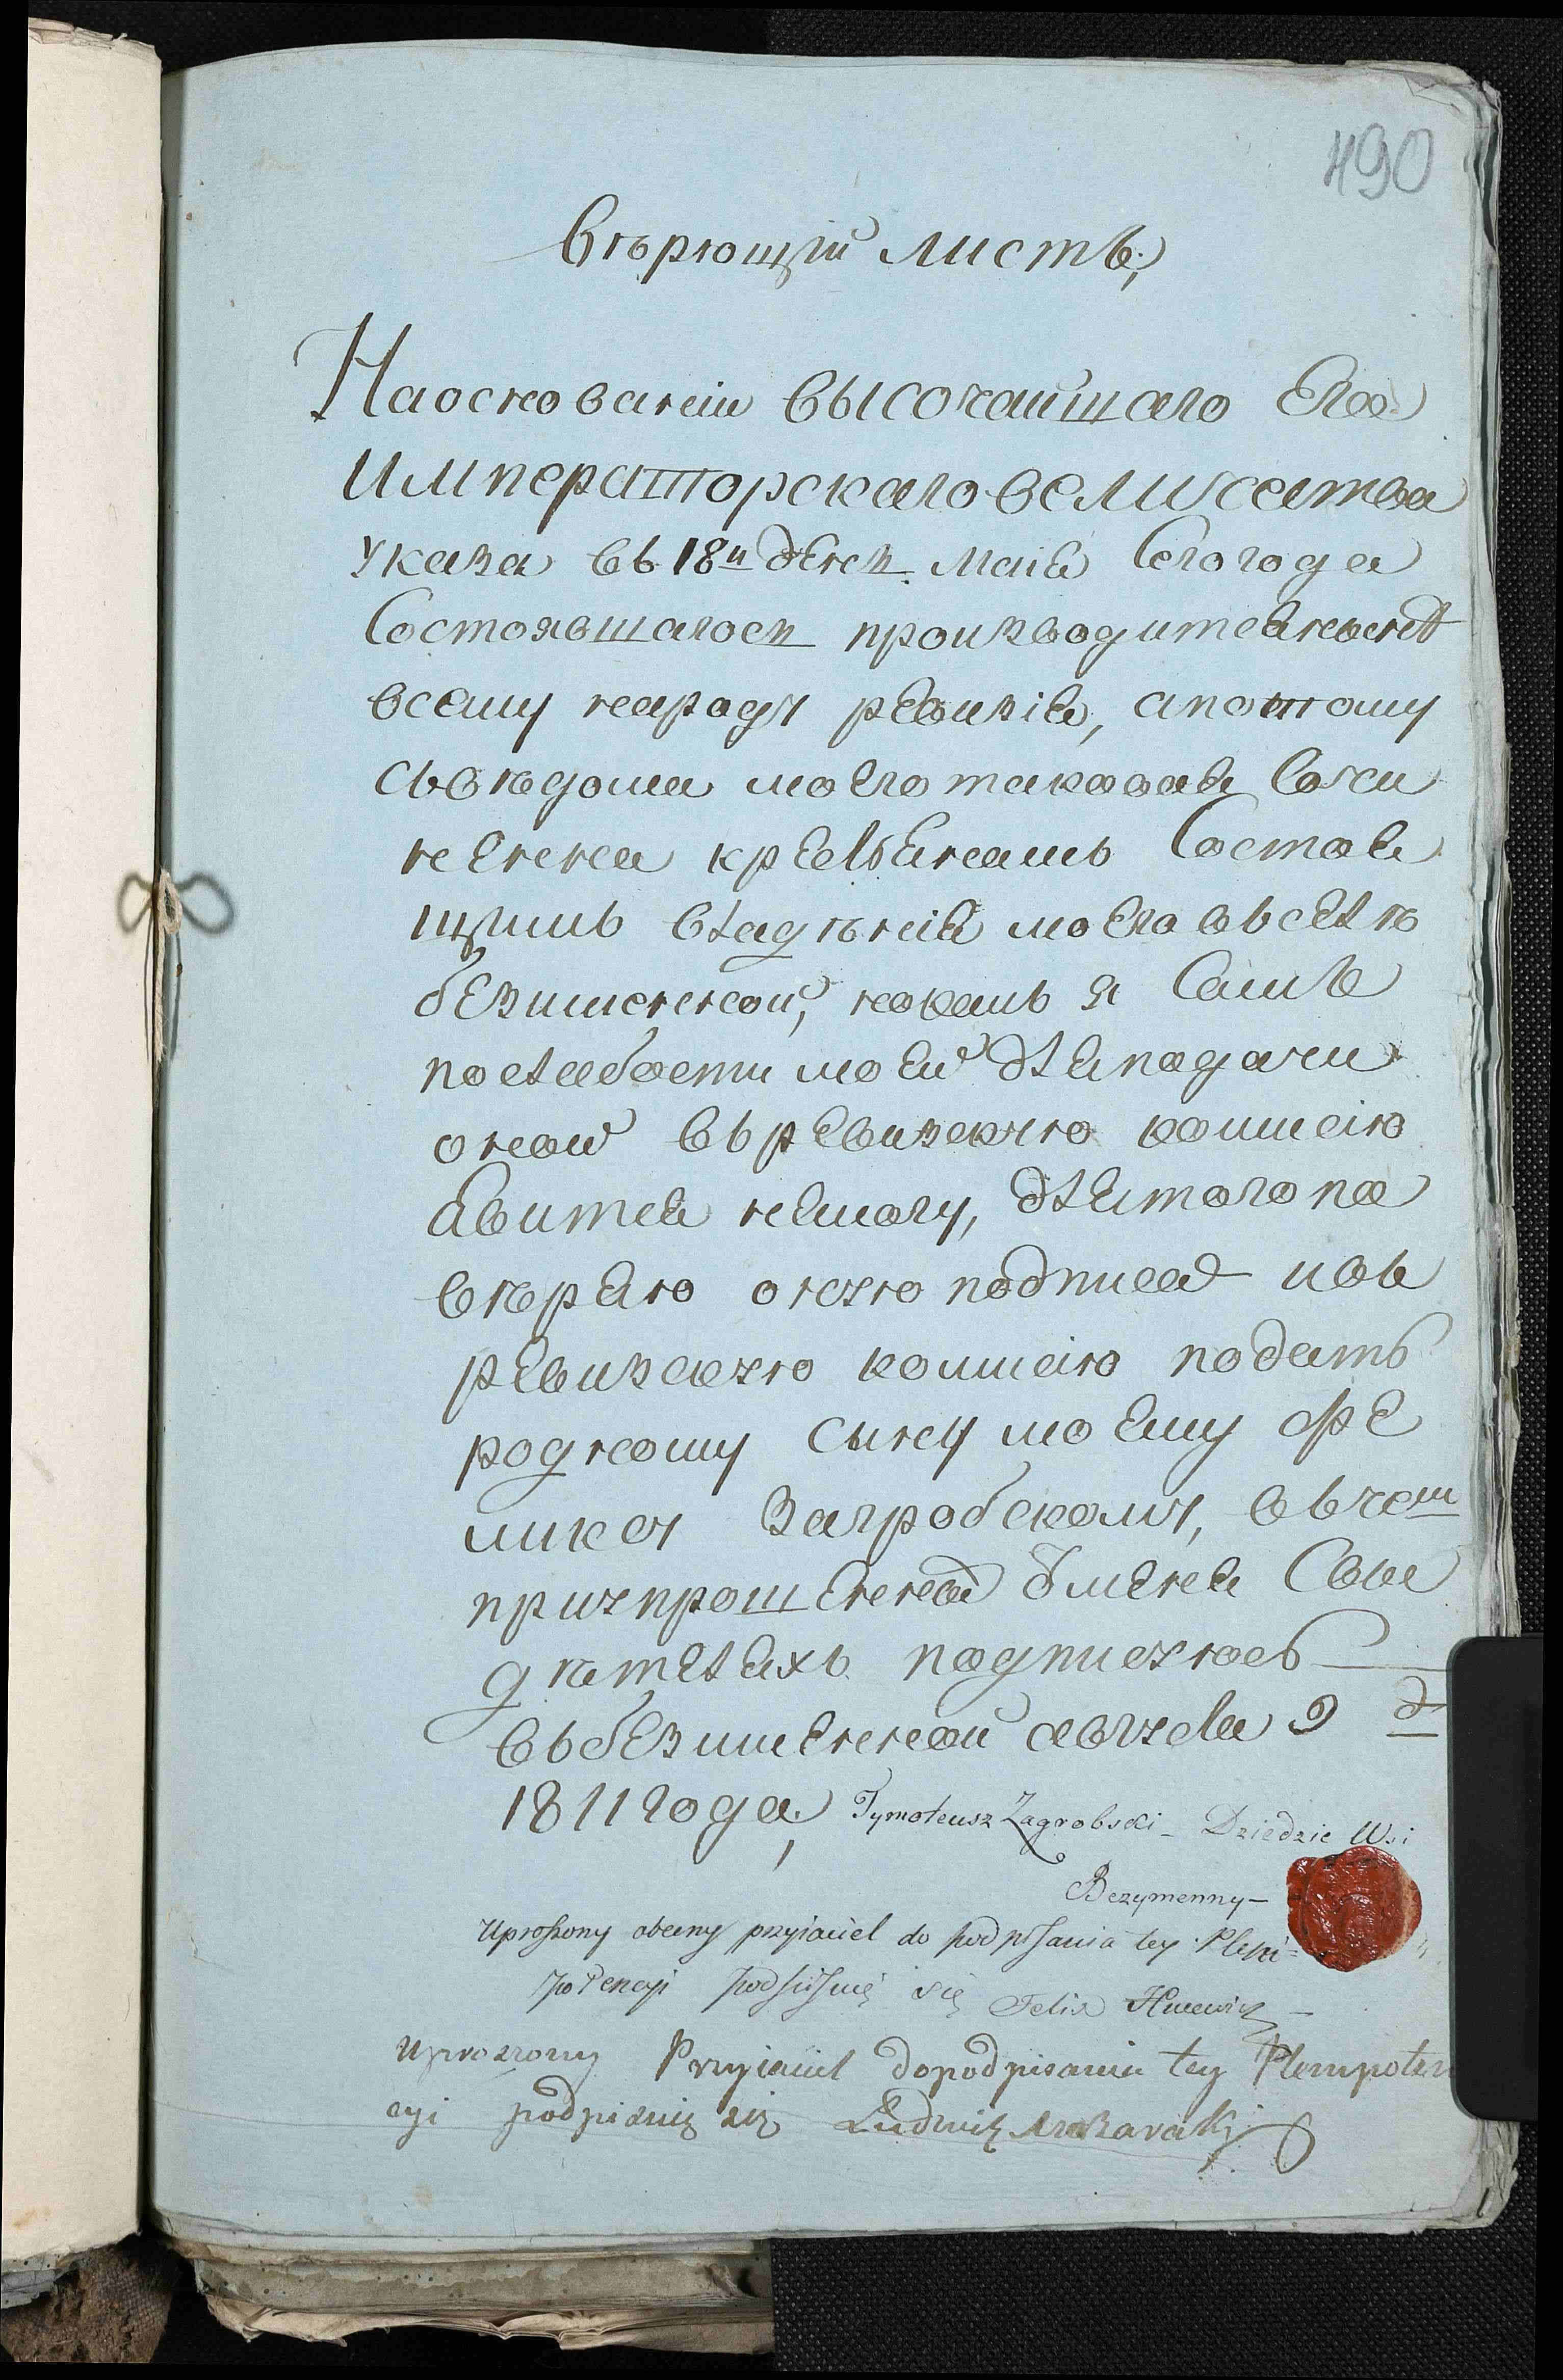 490
Вѣрющій листъ,
Наоснованіи высочайшаго Его
Императорскаго величества
указа въ 18й день маія Сего года
Состоявшагося производител
всему народу ревизія, апотому
съвѣдома моего таковая Сочи
ненна крестьянамъ Состоя
щимъ владѣнія моего въселѣ
безименной, коюжъ я Самъ
послабости моей дляподачи
оной въревизскую комисію
явится немогу, длятого по
вѣряю оную подписат ивъ
ревизскую комисію подать
родному сыну моему
Загробскому, въчем
приупрошенной Сви
дѣтеляхъ подписуюсь
въбезименной августа 9 д
1811 года, Tymoteusz Zagrobski - Dziedzic Wsi
Bezymenny -
Uproszony obecny przyiaciel do podpisania tey Pleni=
potencyi podpisuię się Felix
Uproszony Przyiaciel dopodpisania tey Plenipoten
cyi podpisuię się Ludwik